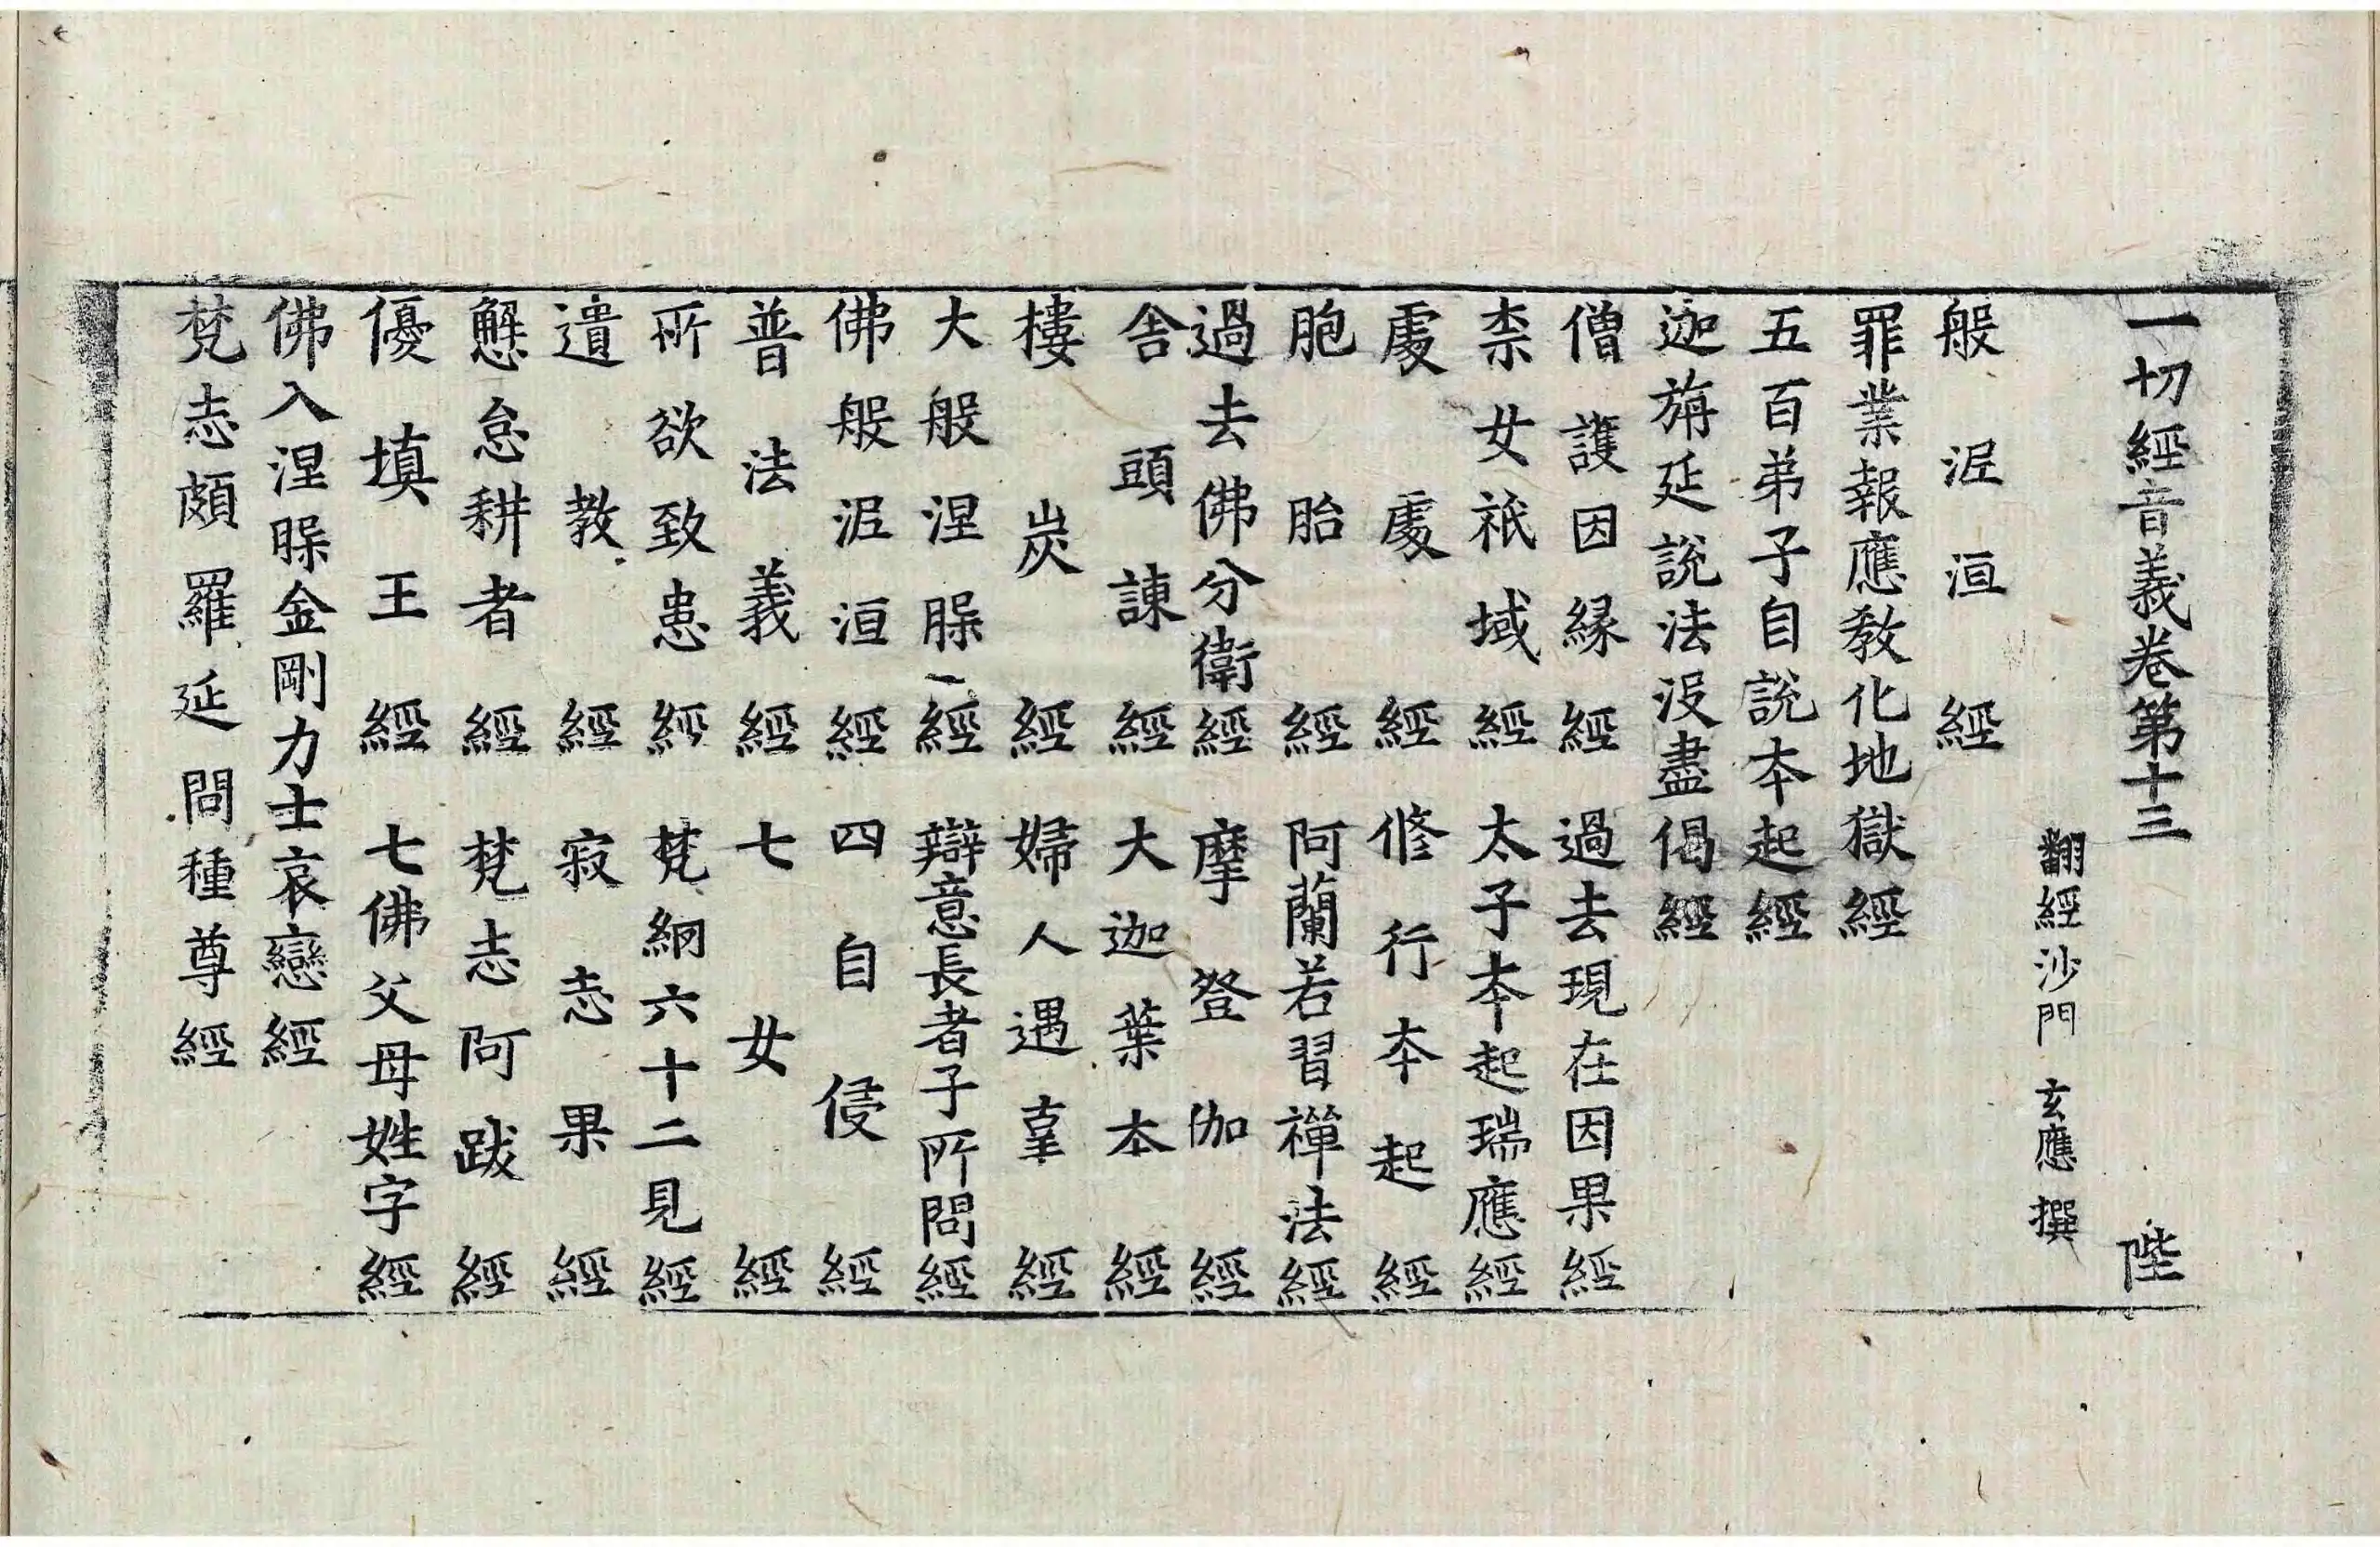 一切經音義卷第十三 陛
翻經沙門 玄應 撰
般泥洹經
罪業報應敎化地獄經
五百弟子自說本起經
迦旃延說法沒盡偈經
僧護因緣經 過去現在因果經
柰女祇域經 太子本起瑞應經
處處經 修行本起經
胞胎經 阿蘭若習禪法經
過去佛分衛經 摩登伽經
舎頭諫經 大迦葉本經
樓炭經 婦人遇辜經
大般涅槃經 辯意長者子所問經
佛般泥洹經 四自侵經
普法義經 七女經
所欲致患經 梵網六十二見經
遺教經 寂志果經
懈怠耕者經 梵志阿跋經
優填王經 七佛父母姓字經
佛入涅槃金剛力士哀戀經
梵志頗羅延問種尊經